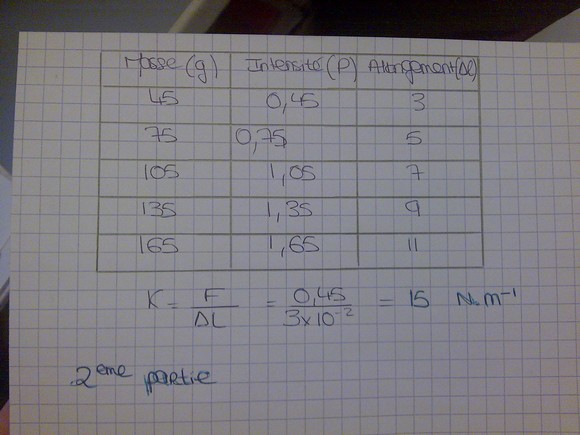 Masse (g) Intensité (P) Allongement (Δl)
45 0,45 3
75 0,75 5
105 1,05 7
135 1,35 9
165 1,65 11
K = F/ΔL = 0,45/3x10⁻² = 15 N.m⁻¹
2eme partie